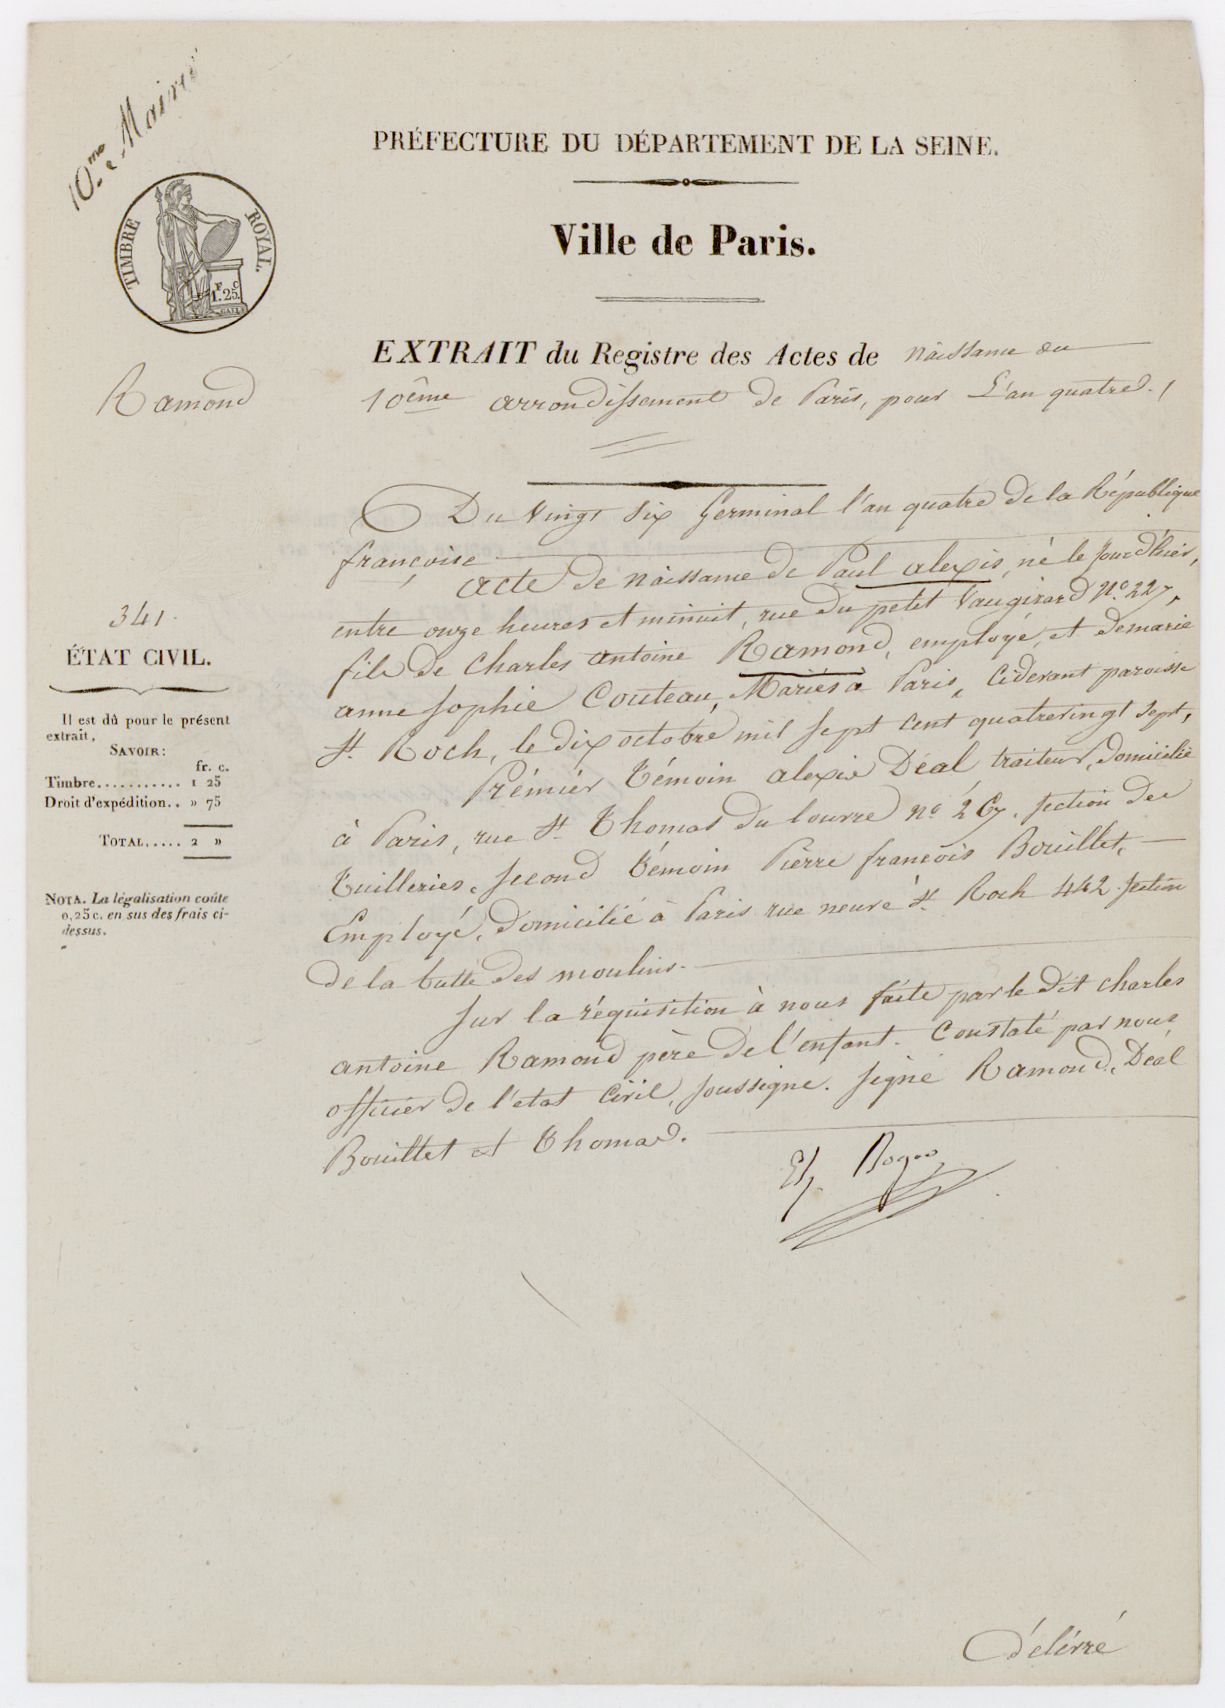 10.me Mairie
TIMBRE ROYAL.
F. C.
1.25.
PRÉFECTURE DU DÉPARTEMENT DE LA SEINE.
Ville de Paris.
EXTRAIT du Registre des Actes de naissance du
10ème arrondissement de Paris, pour L'an quatre.
Ramond
Du Vingt Six Germinal l'an quatre de la République
françoise
acte de naissance de Paul alexis, né le jour d'hier,
entre onze heures et minuit, rue du petit Vaugirard N.o 227,
fils de Charles antoine Ramond, employé, et de marie
anne Sophie Couteau, Mariés à Paris, cidevant paroisse
St. Roch, le dix octobre mil sept cent quatrevingt sept,
Prémier témoin alexis Déal traiteur, domicilié
à Paris, rue St. Thomas du louvre no 267. Section des
tuilleries. Second témoin Pierre françois Bouillet,
Employé, domicilié à Paris rue neuve St. Roch 442. Section
de la butte des moulins.
Sur la réquisition à nous faite par le dit charles
antoine Ramond père de l'enfant. Constaté par nous
officier de l'etat Civil, soussigné. Signé Ramond, Déal
Bouillet et Thomas.
341
ÉTAT CIVIL.
Il est dû pour le présent
extrait,
SAVOIR:
fr. c.
Timbre........... 1 25
Droit d'expédition.. » 75
TOTAL..... 2 »
NOTA. La légalisation coûte
0,25 c. en sus des frais ci-
dessus.
Délivré